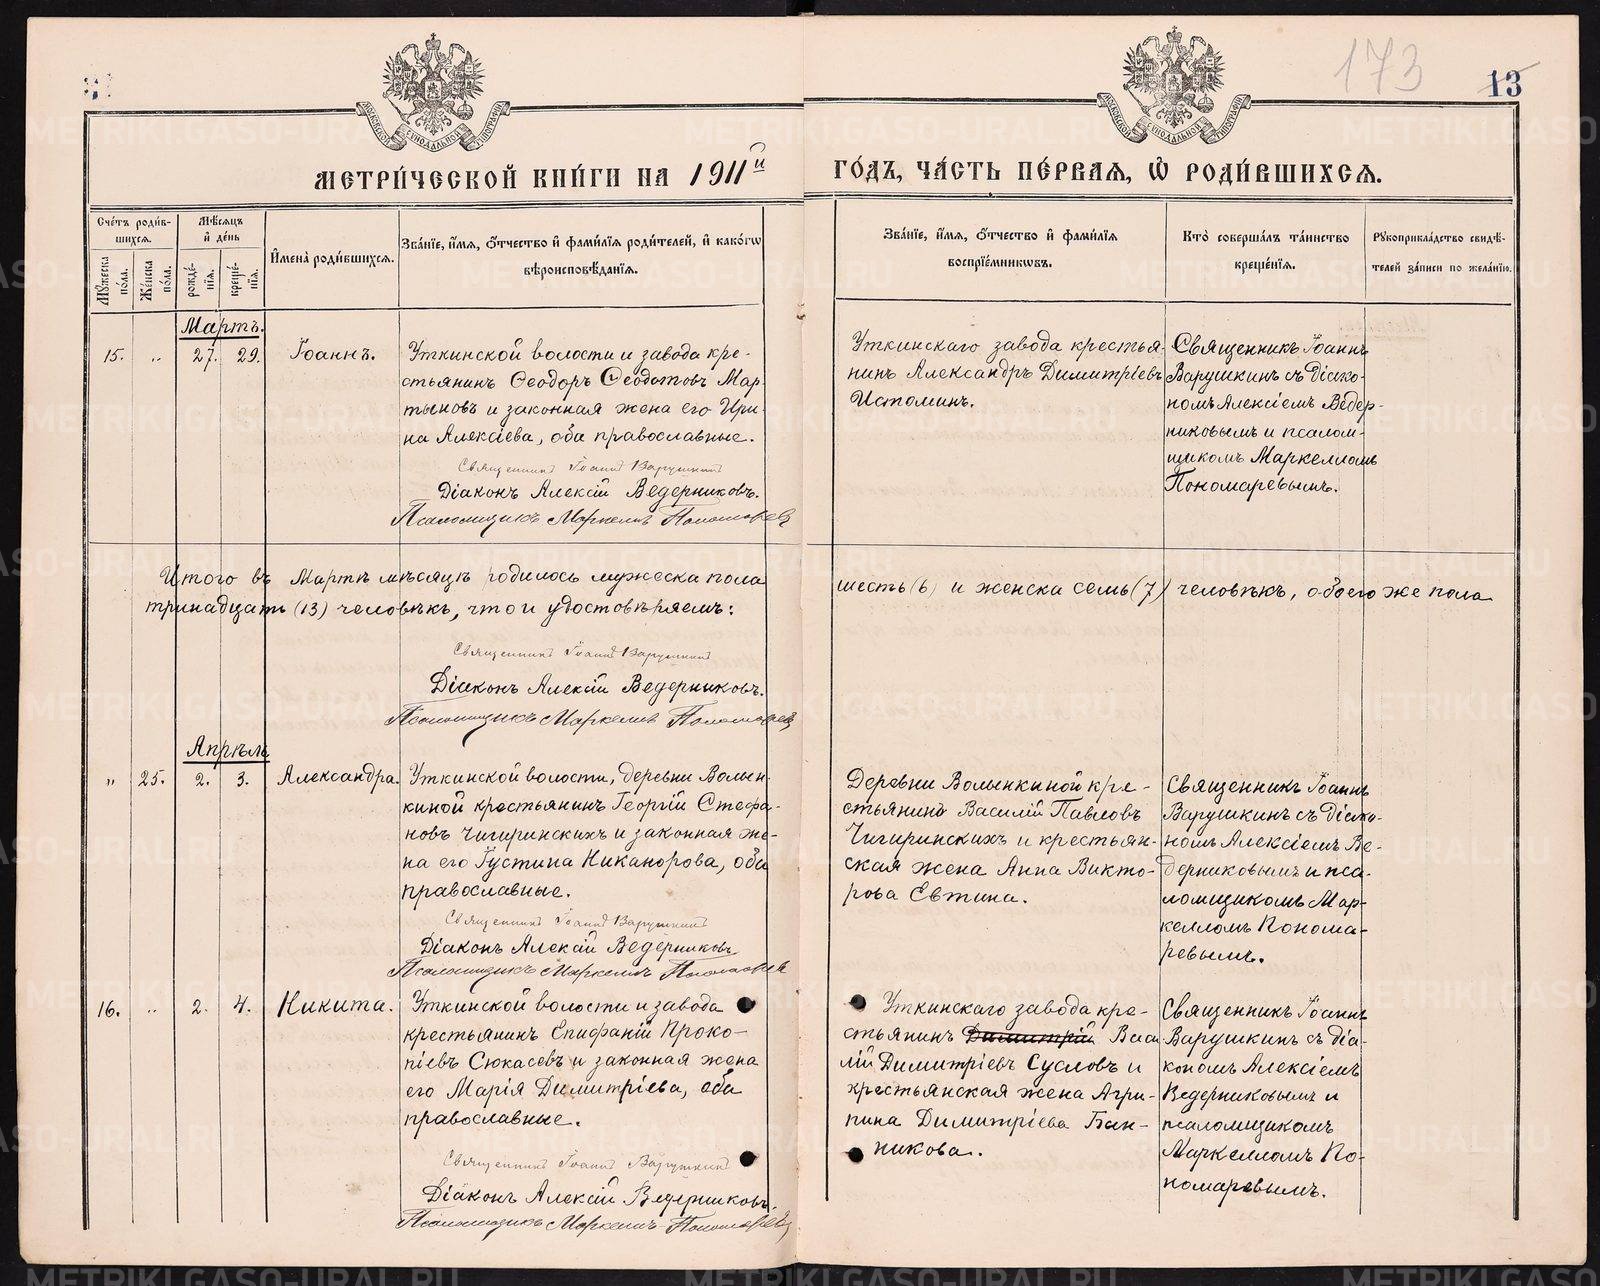 173
13
МОСКОВСКОЙ СѴНОДАЛЬНОЙ ТИПОГРАФІИ
МОСКОВСКОЙ СѴНОДАЛЬНОЙ ТИПОГРАФІИ
МЕТРИ́ЧЕСКОЙ КНИ́ГИ НА 1911й
ГО́ДЪ, ЧА́СТЬ ПЕ́РВАЯ, Ѡ РОДИ́ВШИХСЯ.
Сче́тъ роди́в-
шихся.
Мꙋ́жеска по́ла.
Же́нска по́ла.
Мѣ́сяцъ
и́ де́нь
рожде́-
нїя.
креще́-
нїя.
И́мена̀ роди́вшихся.
Зва́нїе, и́мя, о́тчество и́ фами́лїя роди́телей, и́ како́гѡ
вѣроисповѣ́данїя.
Зва́нїе, и́мя, о́тчество и́ фами́лїя
воспрїе́мникѡвъ.
Кто̀ соверша́лъ та́инство
креще́нїя.
Рꙋкоприкла́дство свидѣ́-
телей за́писи по жела́нїю.
Мартъ.
15. „ 27. 29. Іоаннъ.
Уткинской волости и завода кре-
стьянинъ Ѳеодоръ Ѳеодотовъ Мар-
тыновъ и законная жена его Ири-
на Алексіева, оба православные.
Священникъ Іоаннъ Варушкинъ
Діаконъ Алексій Ведерниковъ.
Псаломщикъ Маркеллъ Пономаревъ
Уткинскаго завода крестья-
нинъ Александръ Димитріевъ
Истоминъ.
Священникъ Іоаннъ
Варушкинъ съ діако-
номъ Алексіемъ Ведер-
никовымъ и псалом-
щикомъ Маркелломъ
Пономаревымъ.
Итого въ Мартѣ мѣсяцѣ родилось мужеска пола
шесть (6) и женска семь (7) человѣкъ, обоего же пола
тринадцать (13) человѣкъ, что и удостовѣряемъ:
Священникъ Іоаннъ Варушкинъ
Діаконъ Алексій Ведерниковъ.
Псаломщикъ Маркеллъ Пономаревъ
Апрѣль
„ 25. 2. 3. Александра.
Уткинской волости, деревни Волын-
киной крестьянинъ Георгій Стефа-
новъ Чигиринскихъ и законная же-
на его Іустина Никанорова, оба
православные.
Священникъ Іоаннъ Варушкинъ
Діаконъ Алексій Ведерниковъ
Псаломщикъ Маркеллъ Пономаревъ
Деревни Волынкиной кре-
стьянинъ Василій Павловъ
Чигиринскихъ и крестьян-
ская жена Анна Викто-
рова Евтина.
Священникъ Іоаннъ
Варушкинъ съ діако-
номъ Алексіемъ Ве-
дерниковымъ и пса-
ломщикомъ Мар-
келломъ Понома-
ревымъ.
16. „ 2. 4. Никита.
Уткинской волости и завода
крестьянинъ Епифаній Проко-
піевъ Сюкасевъ и законная жена
его Марія Димитріева, оба
православные.
Священникъ Іоаннъ Варушкинъ
Діаконъ Алексій Ведерниковъ.
Псаломщикъ Маркеллъ Пономаревъ
Уткинскаго завода кре-
стьянинъ Димитрій Васи
лій Димитріевъ Сусловъ и
крестьянская жена Агри-
пина Димитріева Бан-
никова.
Священникъ Іоаннъ
Варушкинъ съ діа-
кономъ Алексіемъ
Ведерниковымъ и
псаломщикомъ
Маркелломъ По-
номаревымъ.
METRIKI.GASO-URAL.RU